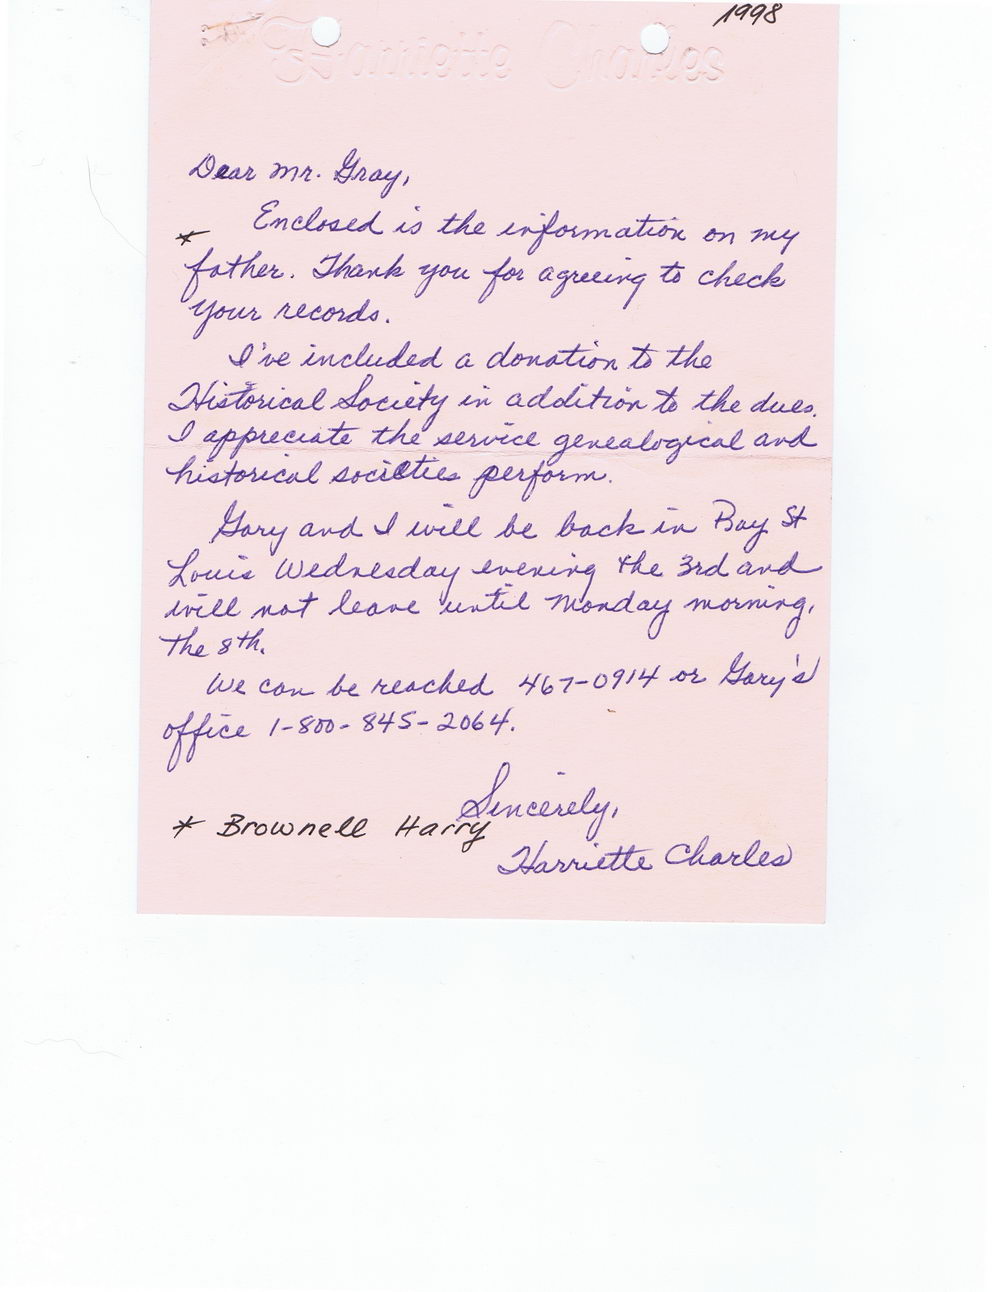 1998
Harriette Charles
Dear Mr. Gray,
Enclosed is the information on my
* father. Thank you for agreeing to check
your records.
I've included a donation to the
Historical Society in addition to the dues.
I appreciate the service genealogical and
historical societies perform.
Gary and I will be back in Bay St
Louis Wednesday evening the 3rd and
will not leave until Monday morning,
the 8th.
We can be reached 467-0914 or Gary's
office 1-800-845-2064.
Sincerely,
* Brownell Harry
Harriette Charles